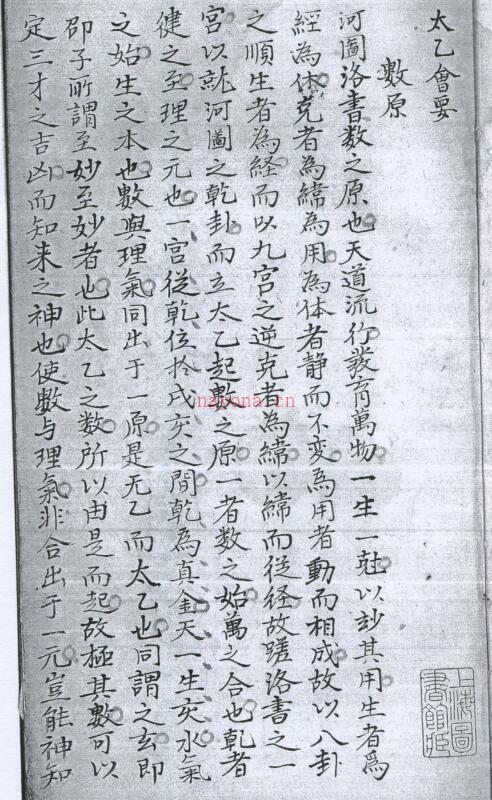 太乙會要
數原
河圖洛書数之原也天道流行發育萬物一生一尅以玅其用生者爲
經為体克者為緯為用為体者静而不変為用者動而相成故以八卦
之順生者為経而以九宮之逆克者為緯以緯而従経故蹉洛書之一
宮以就河圖之乾卦而立太乙起數之原一者数之始萬之合也乹者
健之至理之元也一宮從乾位於戌亥之間乾為真金天一生亥水氣
之始生之本也數與理氣同出于一原是无乙而太乙也同謂之玄即
邵子所謂至妙至妙者也此太乙之数所以由是而起故極其數可以
定三才之吉凶而知来之神也使數与理氣非合出于一元豈能神知
上海圖書館藏
nayona.cn